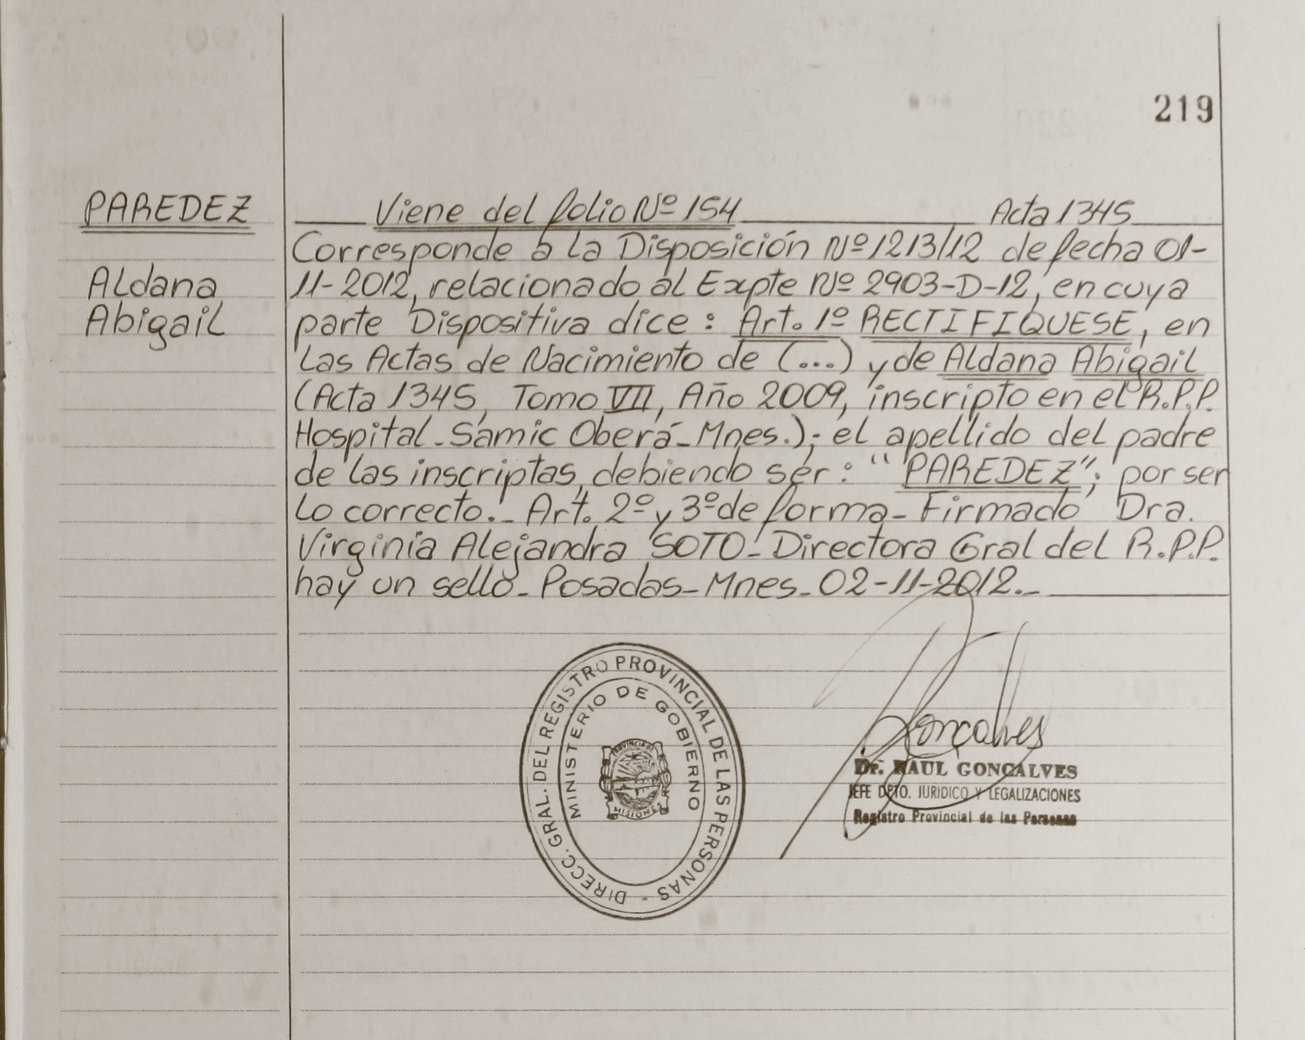 219
PAREDEZ
Aldana
Abigail
Viene del folio Nº 154 Acta 1345
Corresponde a la Disposición Nº 1213/12 de fecha 01-
11-2012, relacionado al Expte Nº 2903-D-12, en cuya
parte Dispositiva dice: Art. 1º RECTIFIQUESE, en
las Actas de Nacimiento de (...) y de Aldana Abigail
(Acta 1345, Tomo VII, Año 2009, inscripto en el R.P.P.
Hospital-Samic Oberá-Mnes.); el apellido del padre
de las inscriptas, debiendo ser: "PAREDEZ"; por ser
lo correcto.- Art. 2º y 3º de forma- Firmado Dra.
Virginia Alejandra SOTO- Directora Gral del R.P.P.
hay un sello- Posadas- Mnes- 02-11-2012.-
DIRECC. GRAL. DEL REGISTRO PROVINCIAL DE LAS PERSONAS -
MINISTERIO DE GOBIERNO
PROVINCIA DE
MISIONES
Goncalves
Dr. RAUL GONCALVES
JEFE DPTO. JURIDICO Y LEGALIZACIONES
Registro Provincial de las Personas